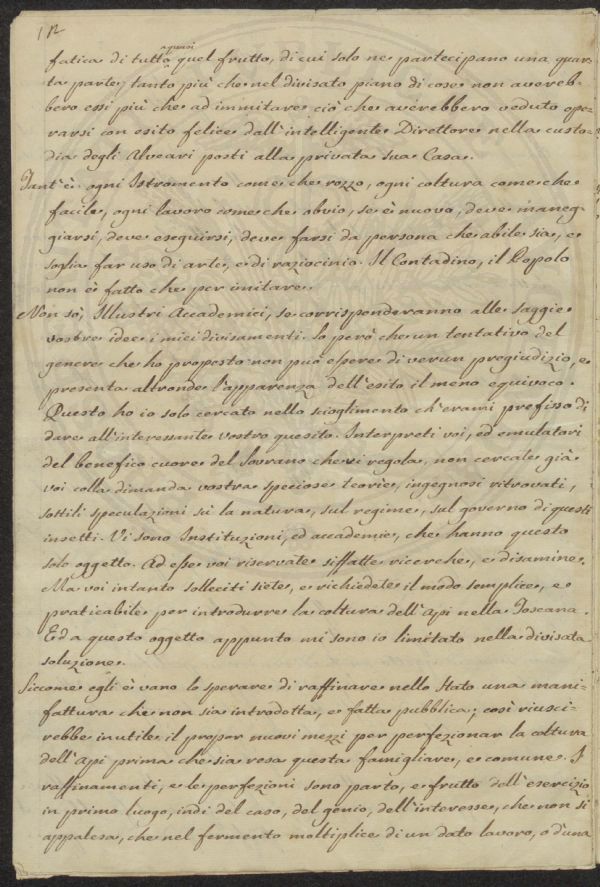 112
fatica di tutto quasi quel frutto, di cui solo ne partecipano una quar-
ta parte, tanto più che nel divisato piano di cose non avereb-
bero essi più che ad immitare ciò che averebbero veduto ope-
rarsi con esito felice dall'intelligente Direttore nella custo-
dia degli Alveari posti alla privata sua Casa.
Tant'è: ogni Istromento come che rozzo, ogni coltura come che
facile, ogni lavoro come che obvio, se è nuovo, deve maneg-
giarsi, deve eseguirsi, deve farsi da persona che abile sia, e
soglia far uso di arte, e di raziocinio. Il Contadino, il Popolo
non è fatto che per imitare.
Non sò, Illustri Accademici, se corrisponderanno alle saggie
vostre idee i miei divisamenti. So però che un tentativo del
genere che ho proposto non può essere di verun pregiudizio, e
presenta altronde l'apparenza dell'esito il meno equivoco.
Questo ho io solo cercato nello scioglimento ch'erami prefisso di
dare all'interessante vostro quesito. Interpreti voi, ed emulatori
del benefico cuore del Sovrano che vi regola, non cercate già
voi colla dimanda vostra speciose teorie, ingegnosi ritrovati,
sottili speculazioni sù la natura, sul regime, sul governo di questi
insetti. Vi sono Instituzioni, ed accademie, che hanno questo
solo oggetto. Ad esse voi riservate siffatte ricerche, e disamine.
Ma voi intanto solleciti siete, e richiedete il modo semplice, e
praticabile per introdurre la coltura dell'Api nella Toscana.
Ed a questo oggetto appunto mi sono io limitato nella divisata
soluzione.
Siccome egli è vano lo sperare di raffinare nello Stato una mani-
fattura che non sia introdotta, e fatta pubblica; così riusci-
rebbe inutile il propor nuovi mezzi per perfezionar la coltura
dell'Api prima che sia resa questa famigliare, e comune. I
raffinamenti, e le perfezioni sono parto, e frutto dell'esercizio
in primo luogo, indi del caso, del genio, dell'interesse, che non si
appalesa, che nel fermento moltiplice di un dato lavoro, o d'una